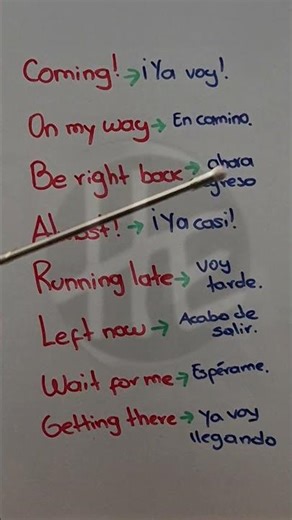 Coming! → ¡Ya voy!
On my way → En camino.
Be right back → ahora
regreso
Almost! → ¡Ya casi!
Running late → voy
tarde.
Left now → Acabo de
salir.
Wait for me → Espérame.
Getting there → Ya voy
llegando